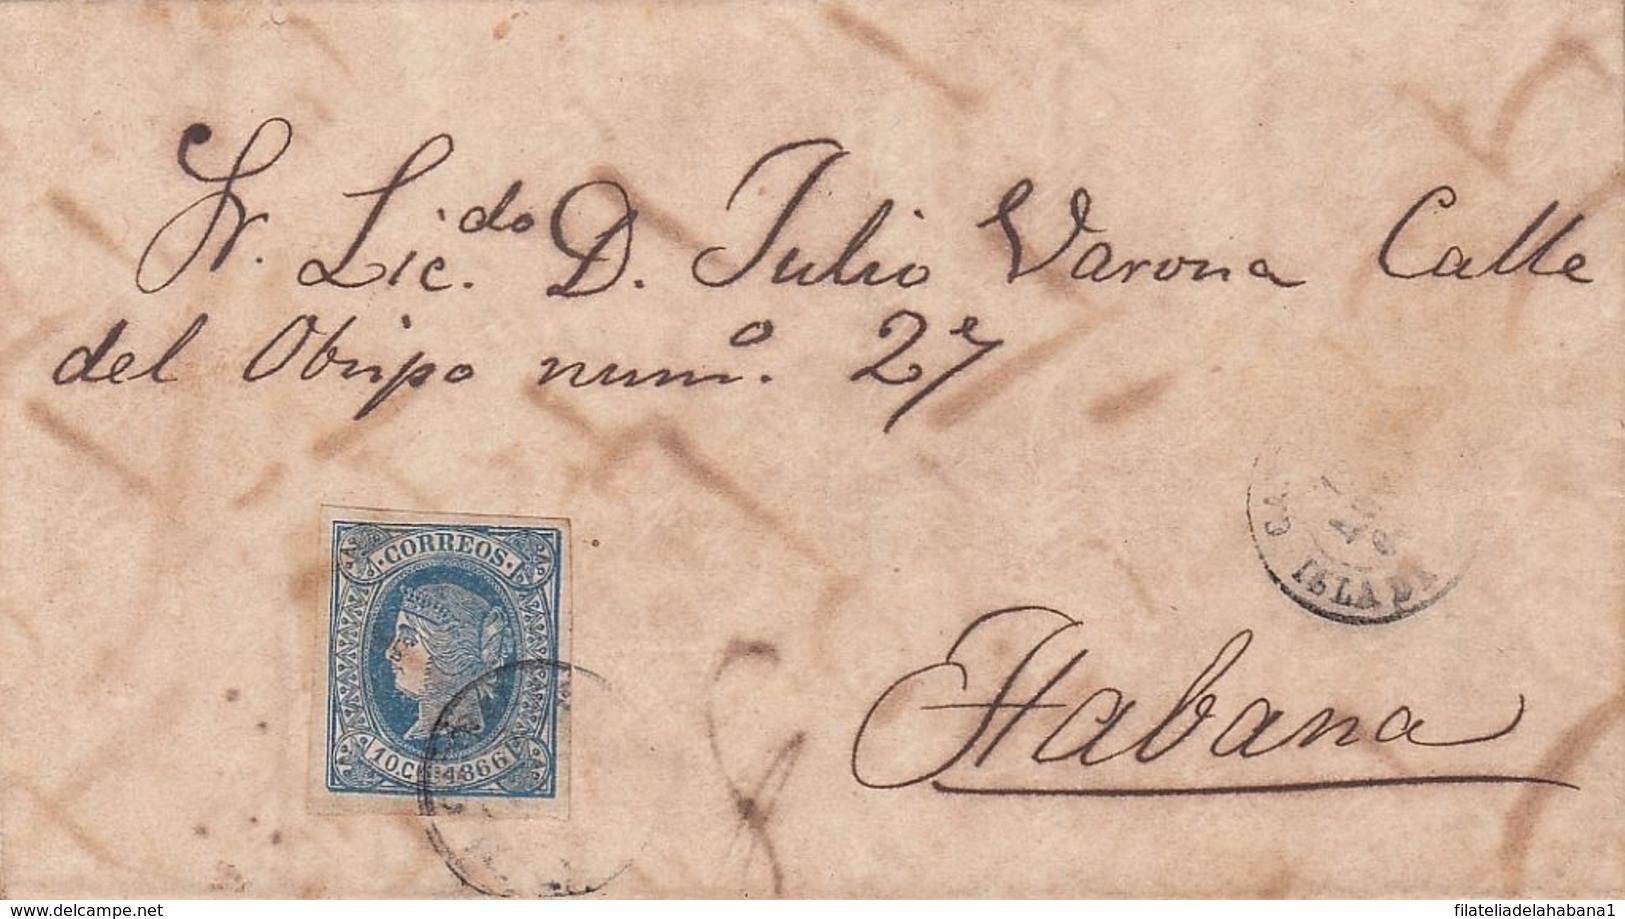 Sr. Lic.do D. Julio Varona Calle
del Obispo num.o 27
CORREOS
10. CS 1866
ISLA DE
Habana
www.delcampe.net
filateliadelahabana1